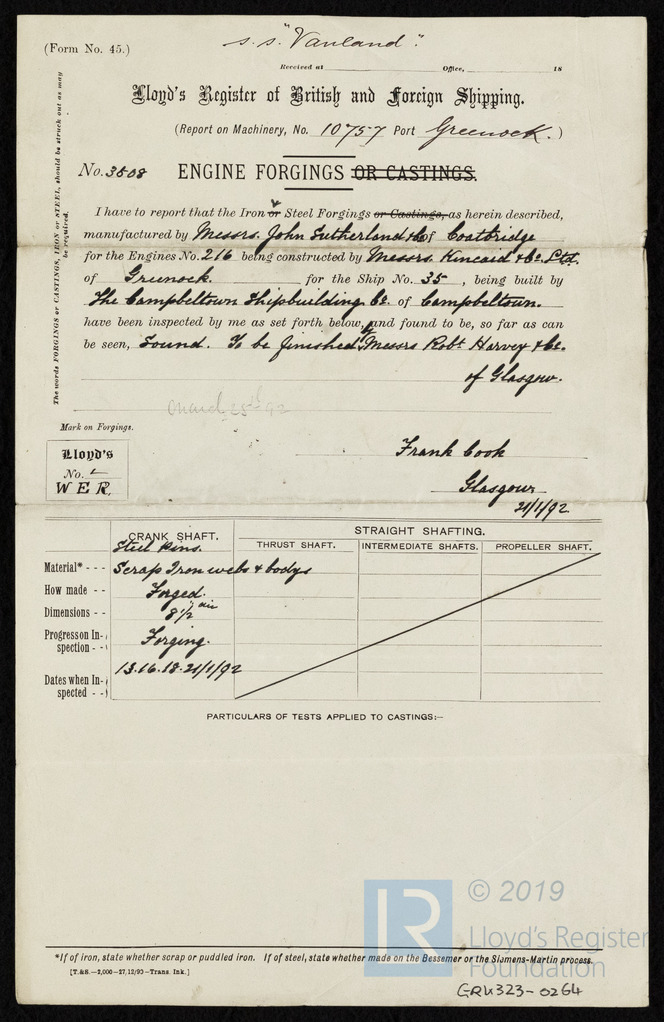 (Form No. 45.)
s.s. "Vanland".
Received at Office, 18
Lloyd's Register of British and Foreign Shipping.
(Report on Machinery, No. 10757 Port Greenock.)
No. 3508 ENGINE FORGINGS OR CASTINGS.
The words FORGINGS or CASTINGS, IRON or STEEL, should be struck out as may be required.
I have to report that the Iron or Steel Forgings or Castings, as herein described,
manufactured by Messrs. John Sutherland & Co of Coatbridge
for the Engines No. 216 being constructed by Messrs. Kincaid & Co. Ltd.
of Greenock. for the Ship No. 35, being built by
The Campbeltown Shipbuilding Co. of Campbeltown.
have been inspected by me as set forth below, and found to be, so far as can
be seen, Sound. To be finished by Messrs Robt Harvey & Co.
of Glasgow.
March 25th 92
Mark on Forgings.
Lloyd's
No.
W E R.
Frank Cook
Glasgow
21/1/92
CRANK SHAFT. STRAIGHT SHAFTING.
THRUST SHAFT. INTERMEDIATE SHAFTS. PROPELLER SHAFT.
Steel Pins.
Material* - - Scrap Iron webs & bodys
How made - - Forged.
Dimensions - - 8 1/2" dia
Progress on Inspection - - Forging.
Dates when Inspected - - 13.16.18.21/1/92
PARTICULARS OF TESTS APPLIED TO CASTINGS:—
*If of iron, state whether scrap or puddled iron. If of steel, state whether made on the Bessemer or the Siemens-Martin process.
[T.&S.—2,000—27,12/90—Trans. Ink.]
LR
© 2019
Lloyd's Register
Foundation
GRK323-0264